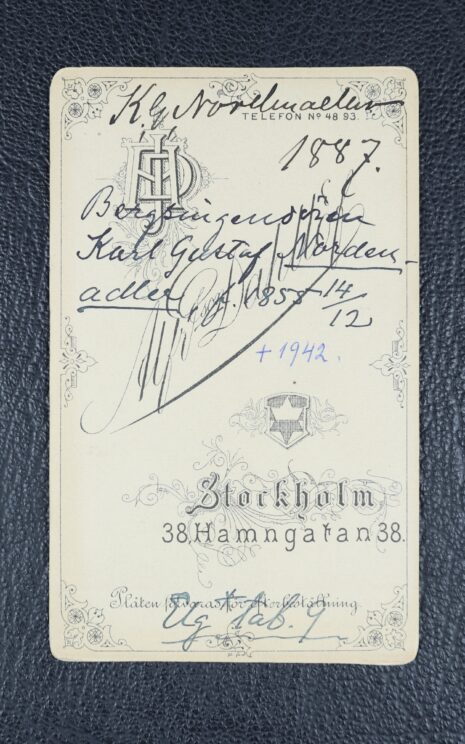 K G Nordenadler
TELEFON Nº 48 93.
1887.
Bergsingeniören
Karl Gustaf Norden-
adler, f. 1858 14/12
+ 1942.
Stockholm
38, Hamngatan 38.
Plåten förvaras för Efterbeställning.
Ag tab. 9